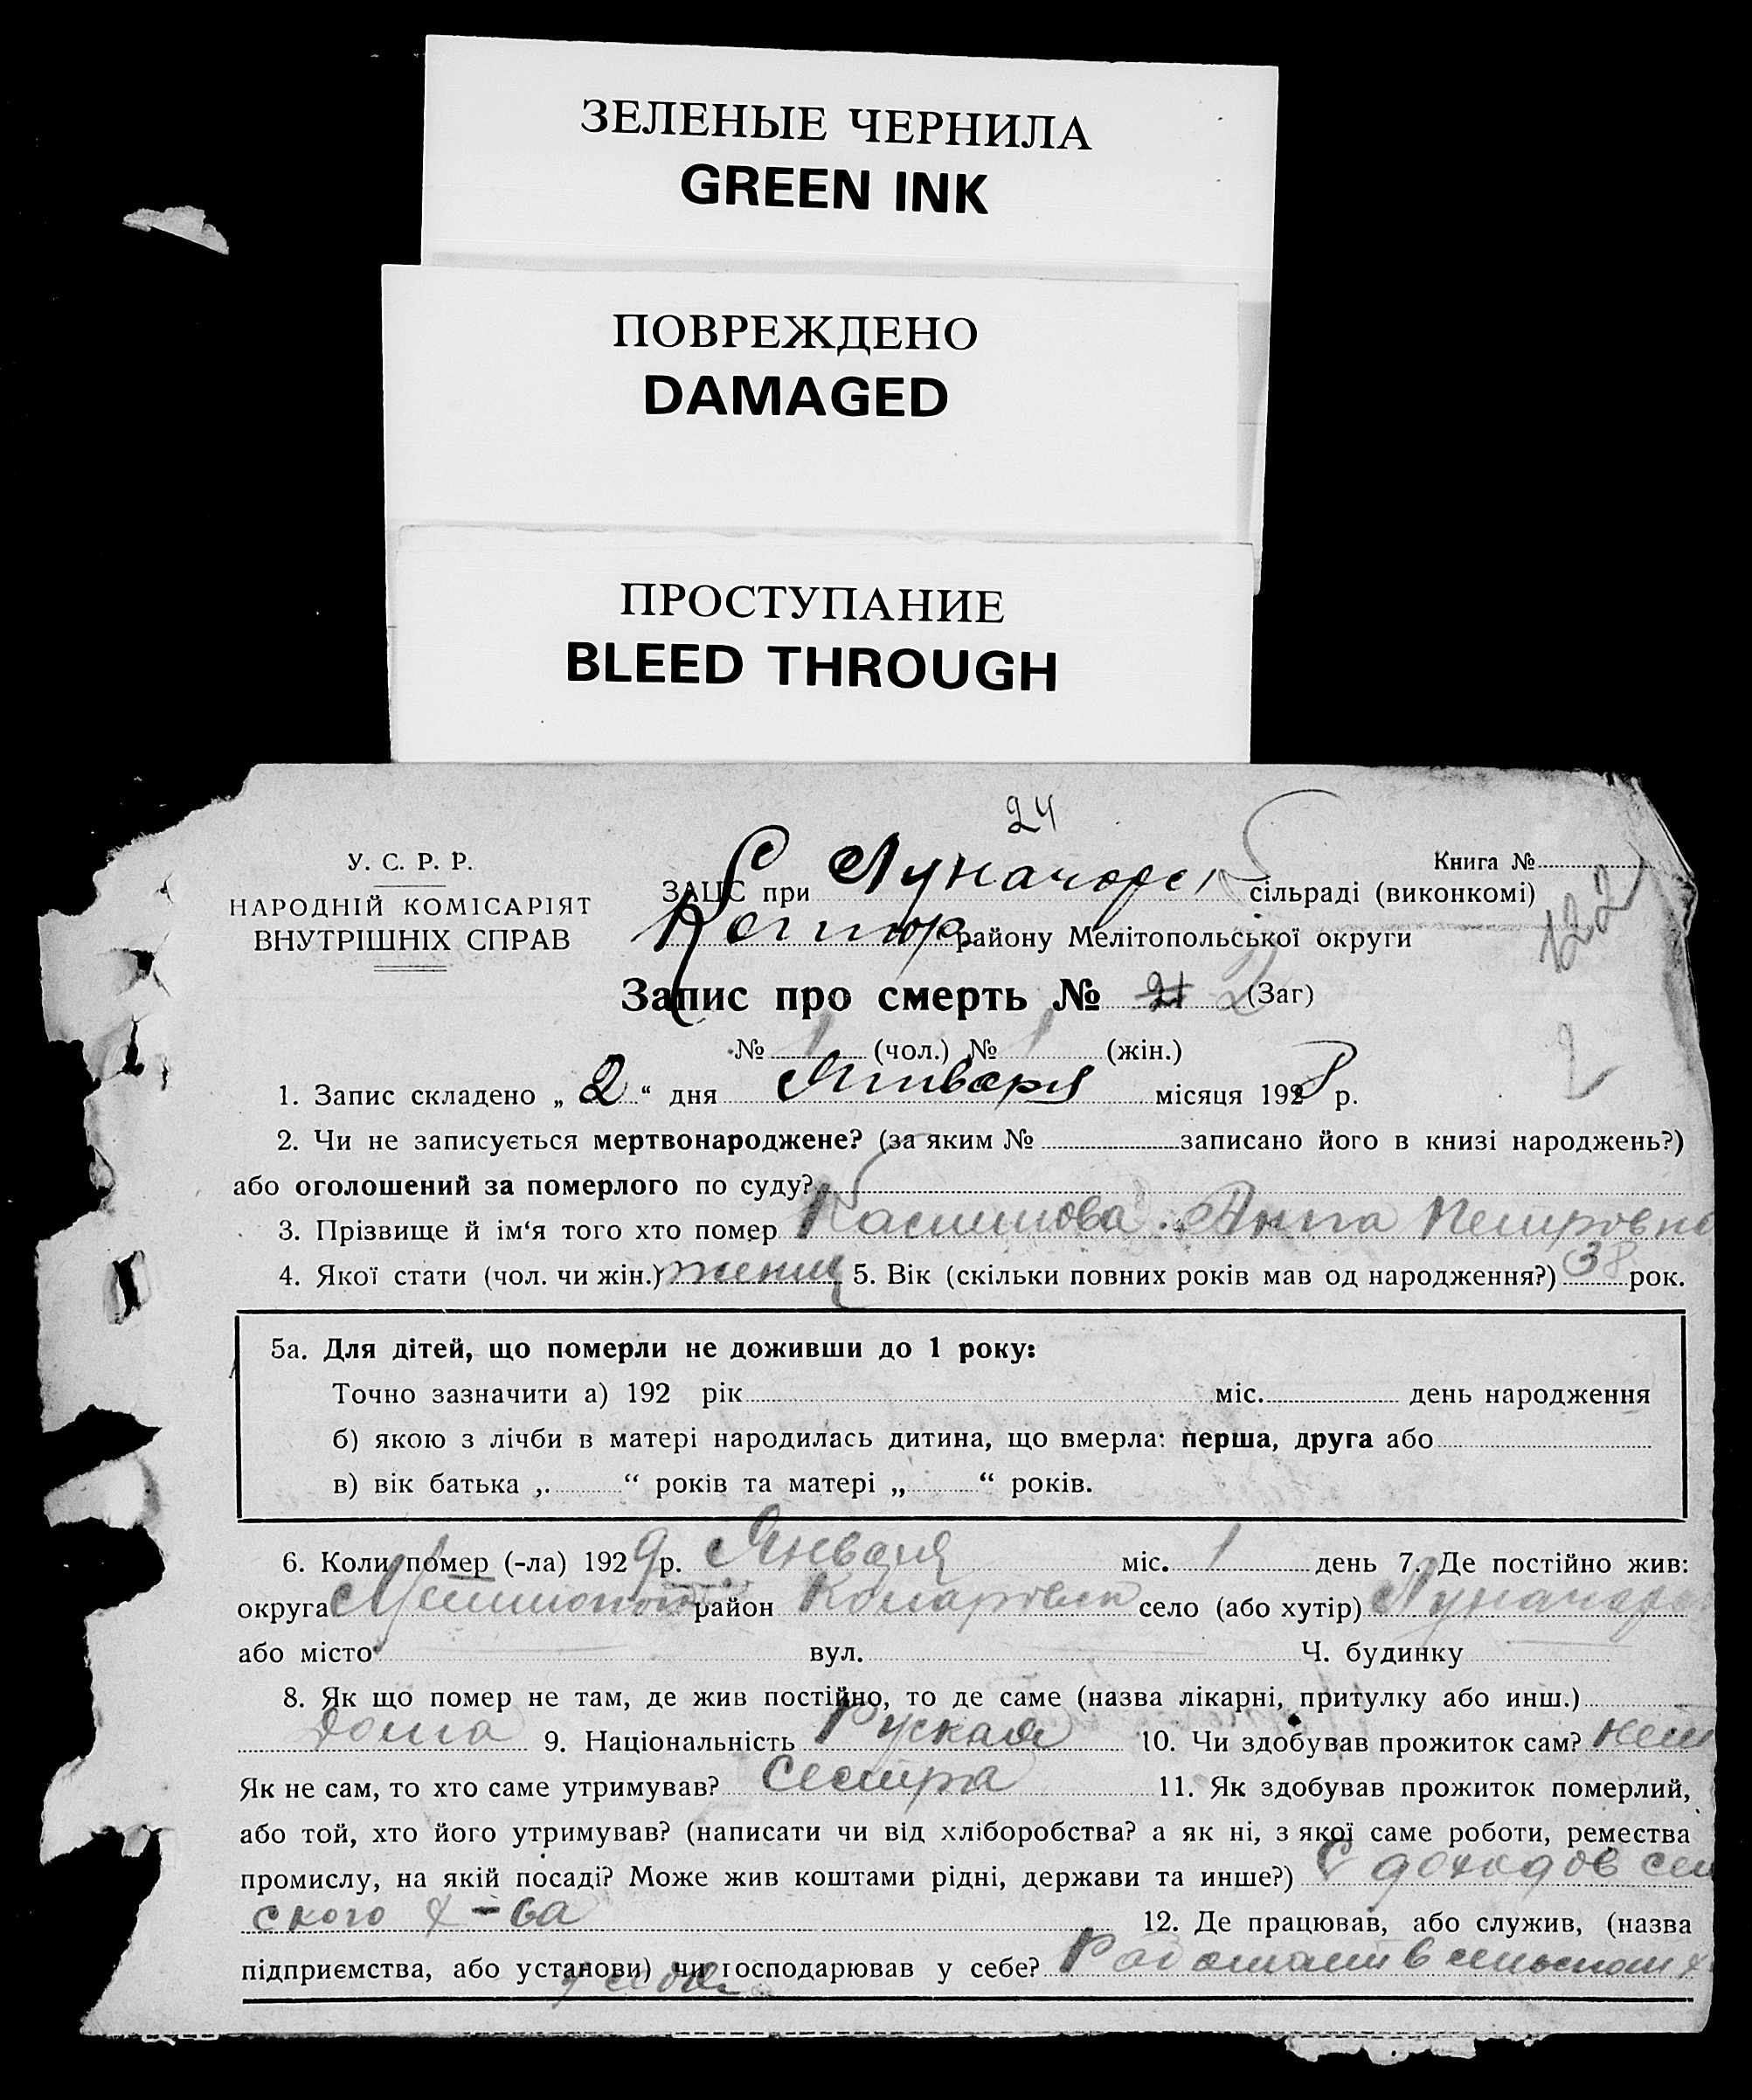 ЗЕЛЕНЫЕ ЧЕРНИЛА
GREEN INK
ПОВРЕЖДЕНО
DAMAGED
ПРОСТУПАНИЕ
BLEED THROUGH
24
У. С. Р. Р.
НАРОДНІЙ КОМІСАРІЯТ
ВНУТРІШНІХ СПРАВ
Книга №
122
ЗАЦС при Луначарск сільраді (виконкомі)
району Мелітопольської округи
Запис про смерть № 2 (Заг)
2
№ 1 (чол.) № 1 (жін.)
1. Запис складено „ 2 “ дня Января місяця 1928 р.
2. Чи не записується мертвонароджене? (за яким № записано його в книзі народжень?)
або оголошений за померлого по суду?
3. Прізвище й ім‘я того хто помер Анна Петровна
4. Якої стати (чол. чи жін.) женщ 5. Вік (скільки повних років мав од народження?) 38 рок.
5а. Для дітей, що померли не доживши до 1 року:
Точно зазначити а) 192 рік міс. день народження
б) якою з лічби в матері народилась дитина, що вмерла: перша, друга або
в) вік батька „ “ років та матері „ “ років.
6. Коли помер (-ла) 1929 р. Января міс. 1 день 7. Де постійно жив:
округа район село (або хутір) Луначар
або місто вул. Ч. будинку
8. Як що помер не там, де жив постійно, то де саме (назва лікарні, притулку або инш.)
дома 9. Національність Руская 10. Чи здобував прожиток сам? нет
Як не сам, то хто саме утримував? Сестра 11. Як здобував прожиток померлий,
або той, хто його утримував? (написати чи від хліборобства? а як ні, з якої саме роботи, ремества
промислу, на якій посаді? Може жив коштами рідні, держави та инше?) С доходов сел
ского х-ва 12. Де працював, або служив, (назва
підприємства, або установи) чи господарював у себе? Работает в сельском х
у себя